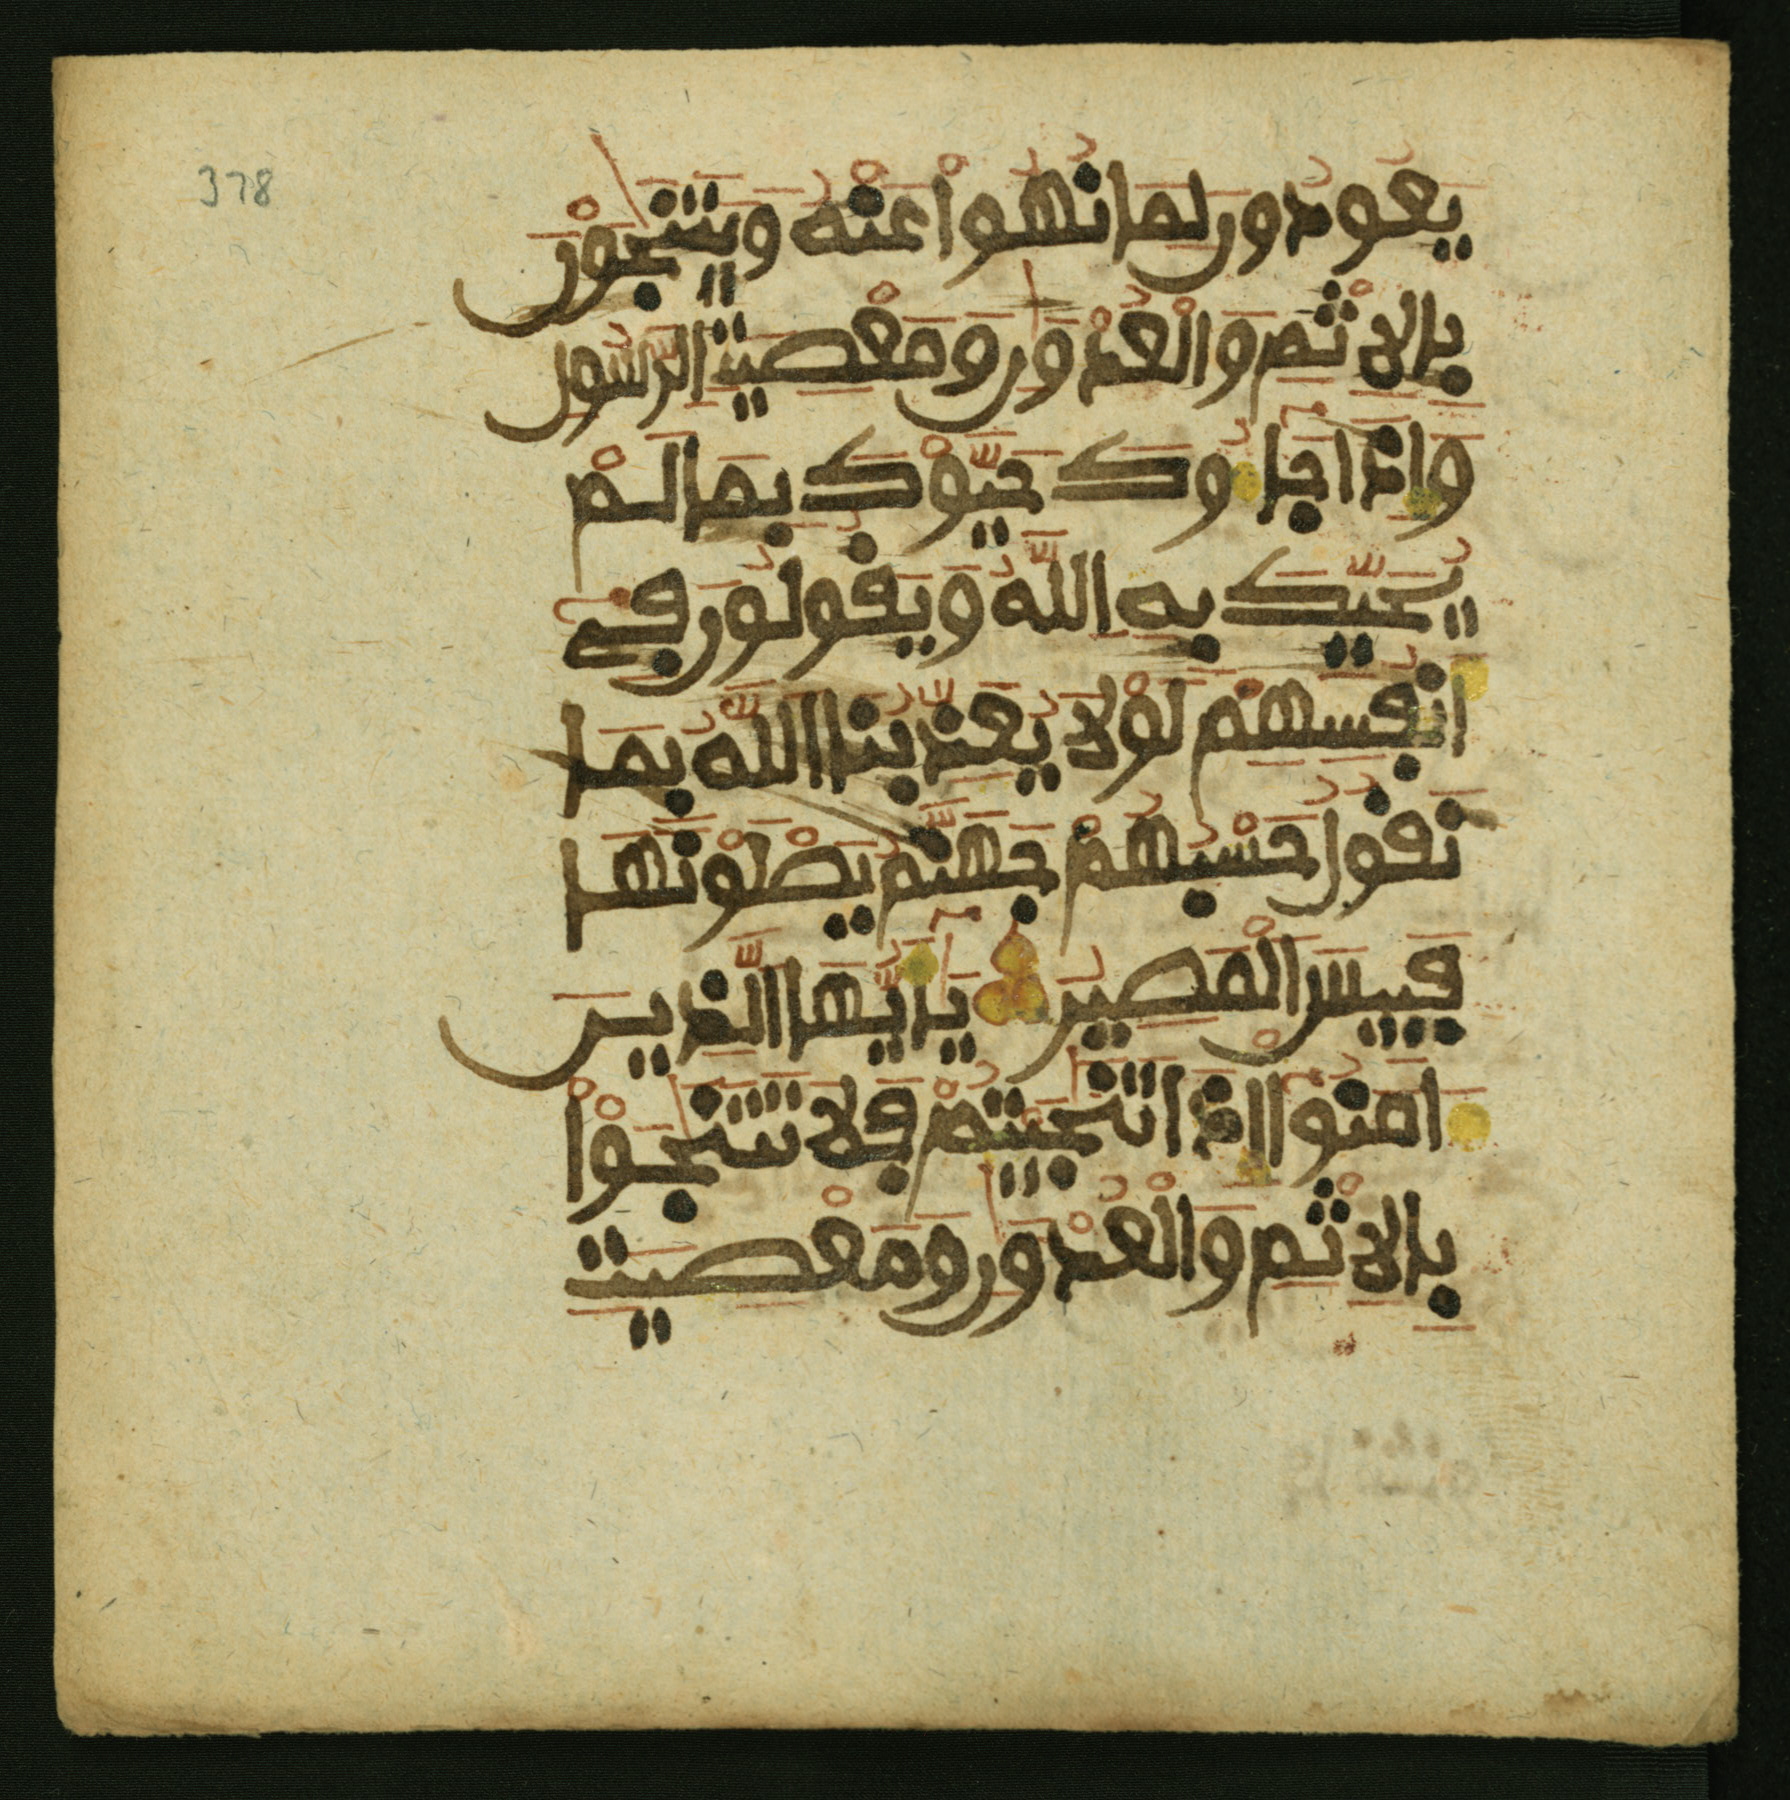 378
يَعُودُونَ لِمَا نُهُواْ عَنْهُ وَيَتَنَٰجَوْنَ
بِالِاثْمِ وَالْعُدْوَٰنِ وَمَعْصِيَتِ الرَّسُولِ
وَإِذَا جَآءُوكَ حَيَّوْكَ بِمَا لَمْ
يُحَيِّكَ بِهِ اللَّهُ وَيَقُولُونَ فِےٓ
أَنفُسِهِمْ لَوْلَا يُعَذِّبُنَا اللَّهُ بِمَا
نَقُولُ حَسْبُهُمْ جَهَنَّمُ يَصْلَوْنَهَا
فَبِيسَ الْمَصِيرُ يَٰٓأَيُّهَا الَّذِينَ
ءَامَنُوٓاْ إِذَا تَنَٰجَيْتُمْ فَلَا تَتَنَٰجَوْاْ
بِالِاثْمِ وَالْعُدْوَٰنِ وَمَعْصِيَتِ